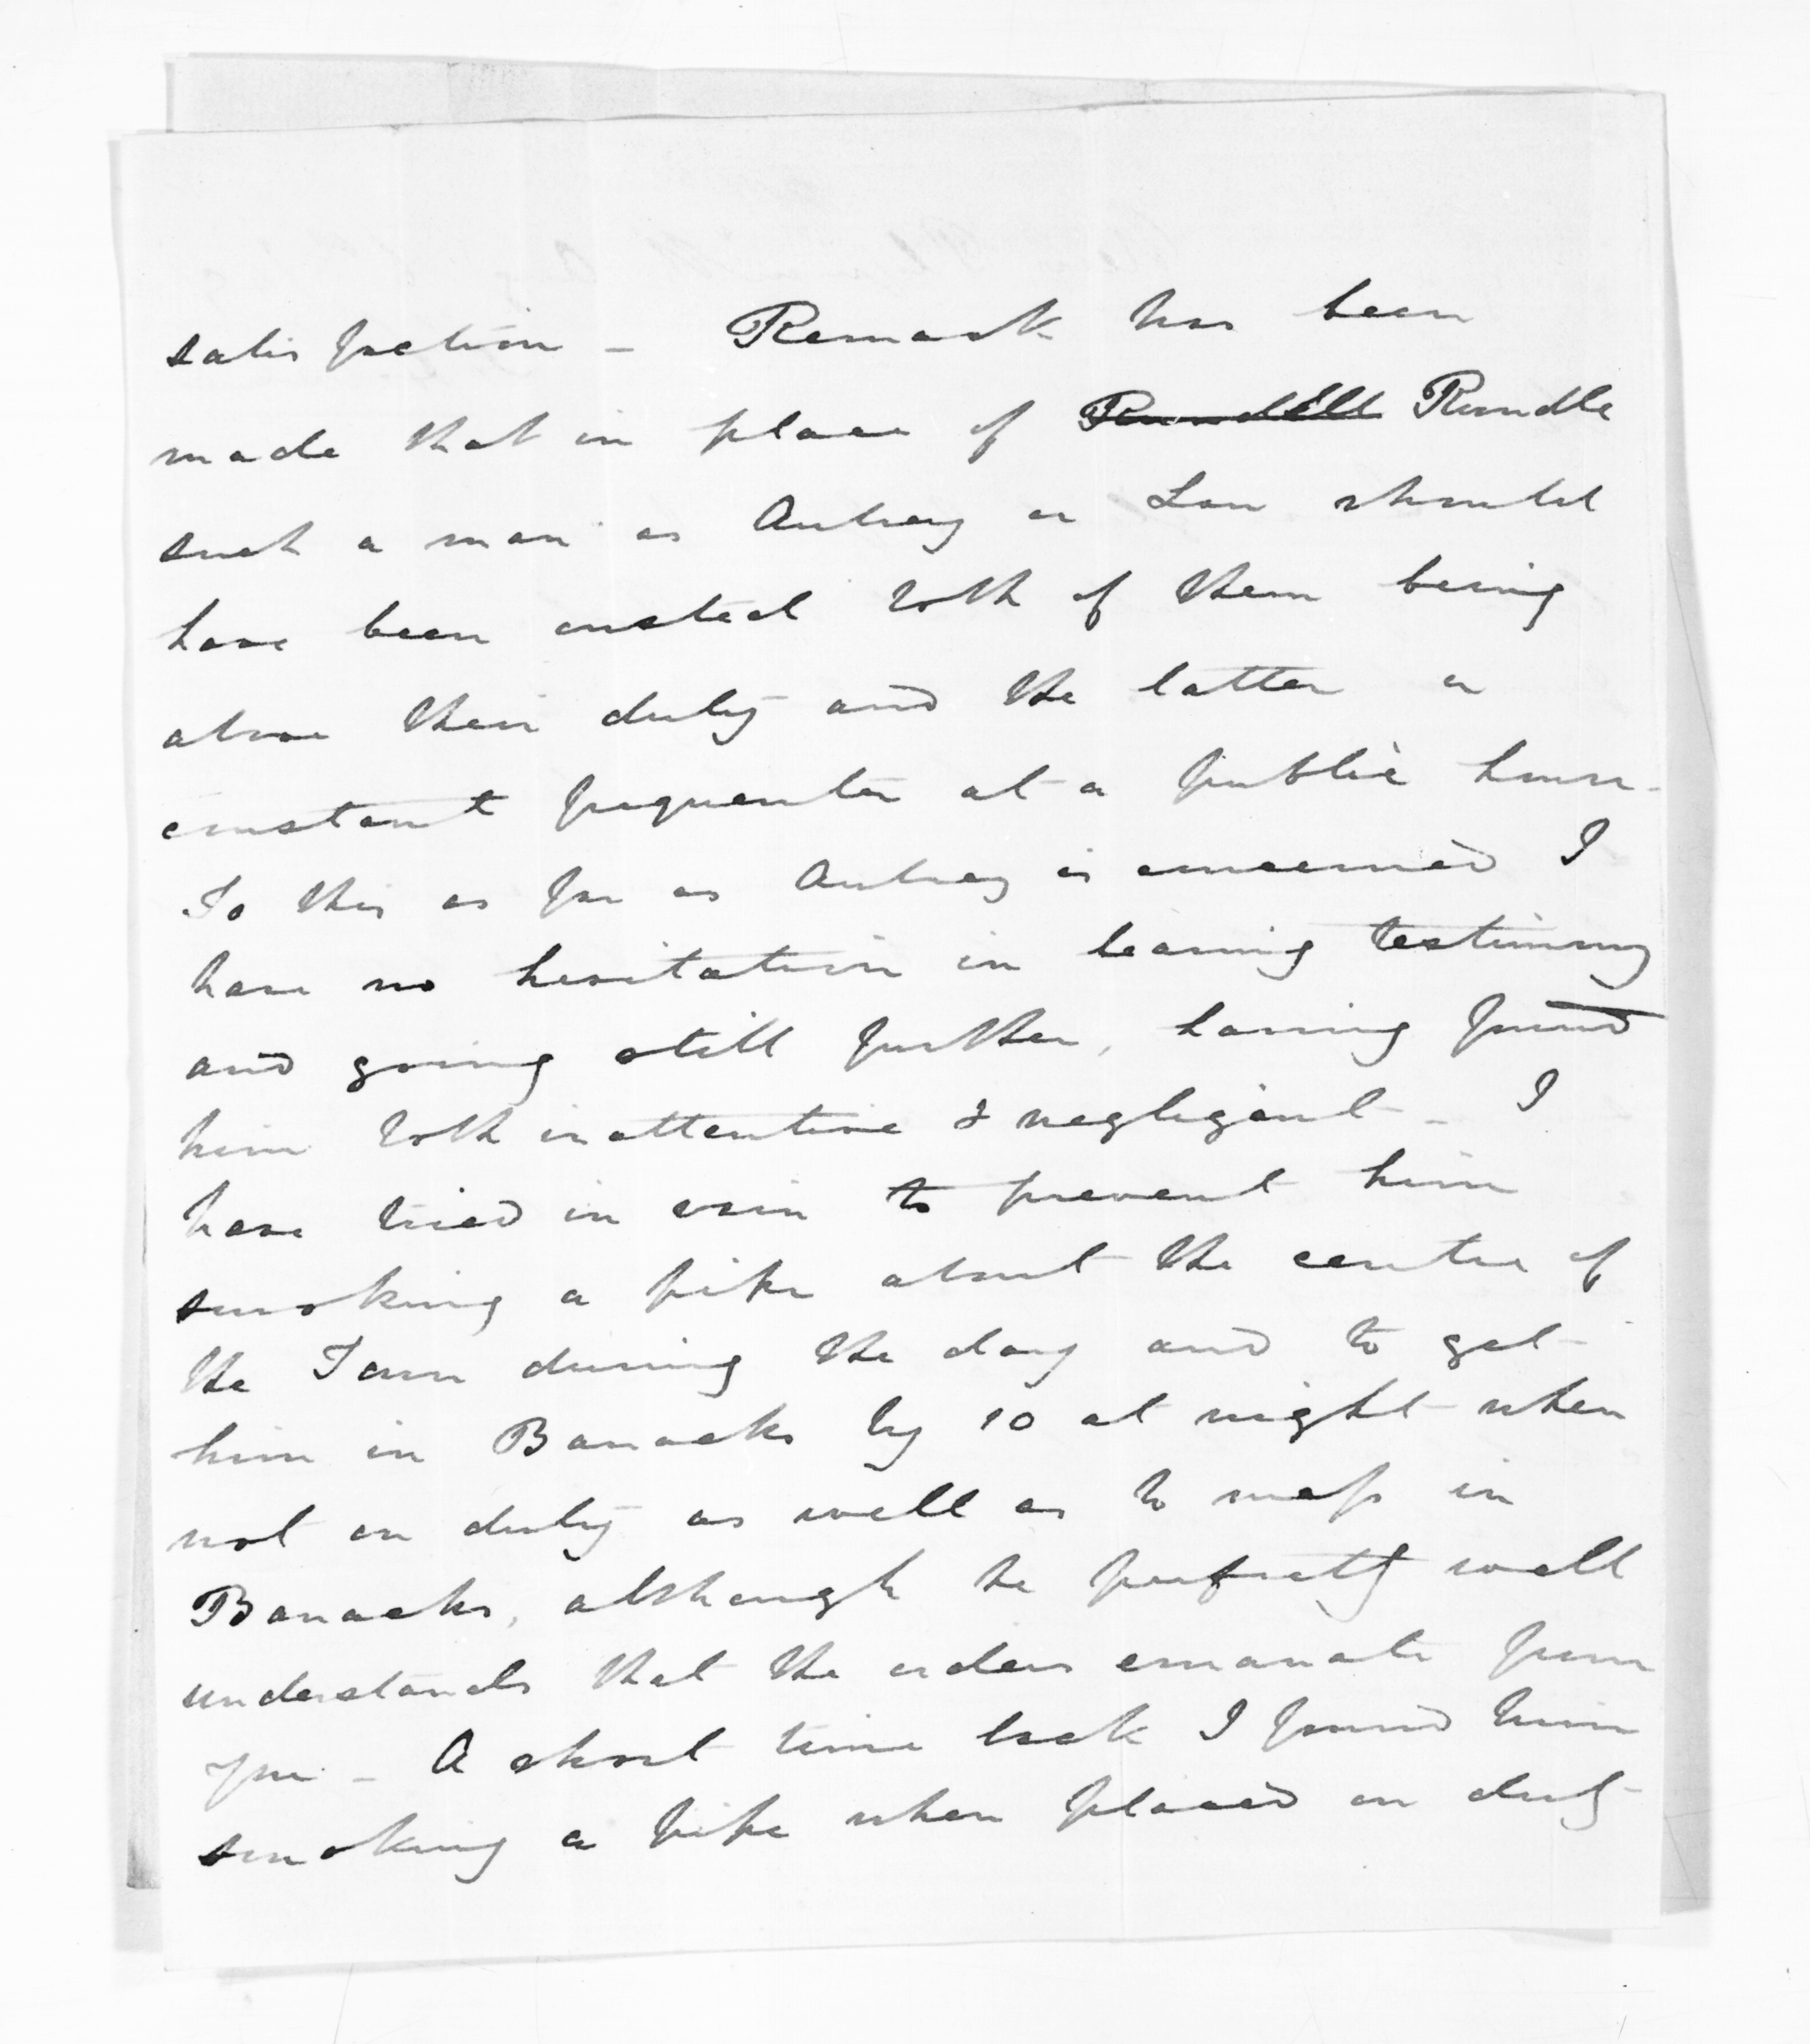 satisfaction – Remark has been
made that in place of Rundell Rundle
such a man as Autrey or Law should
have been ousted both of them being
above their duty and the latter a
constant frequenter at a public house –
To this as far as Autrey is concerned I
have no hesitation in bearing testimony
and going still further, having found
him both inattentive & negligent – I
have tried in vain to prevent him
smoking a pipe about the centre of
the Town during the day and to get
him in Barracks by 10 at night when
not on duty as well as to mess in
Barracks, although he perfectly well
understands that the orders emanate from
you – A short time back I found him
smoking a pipe when placed on duty